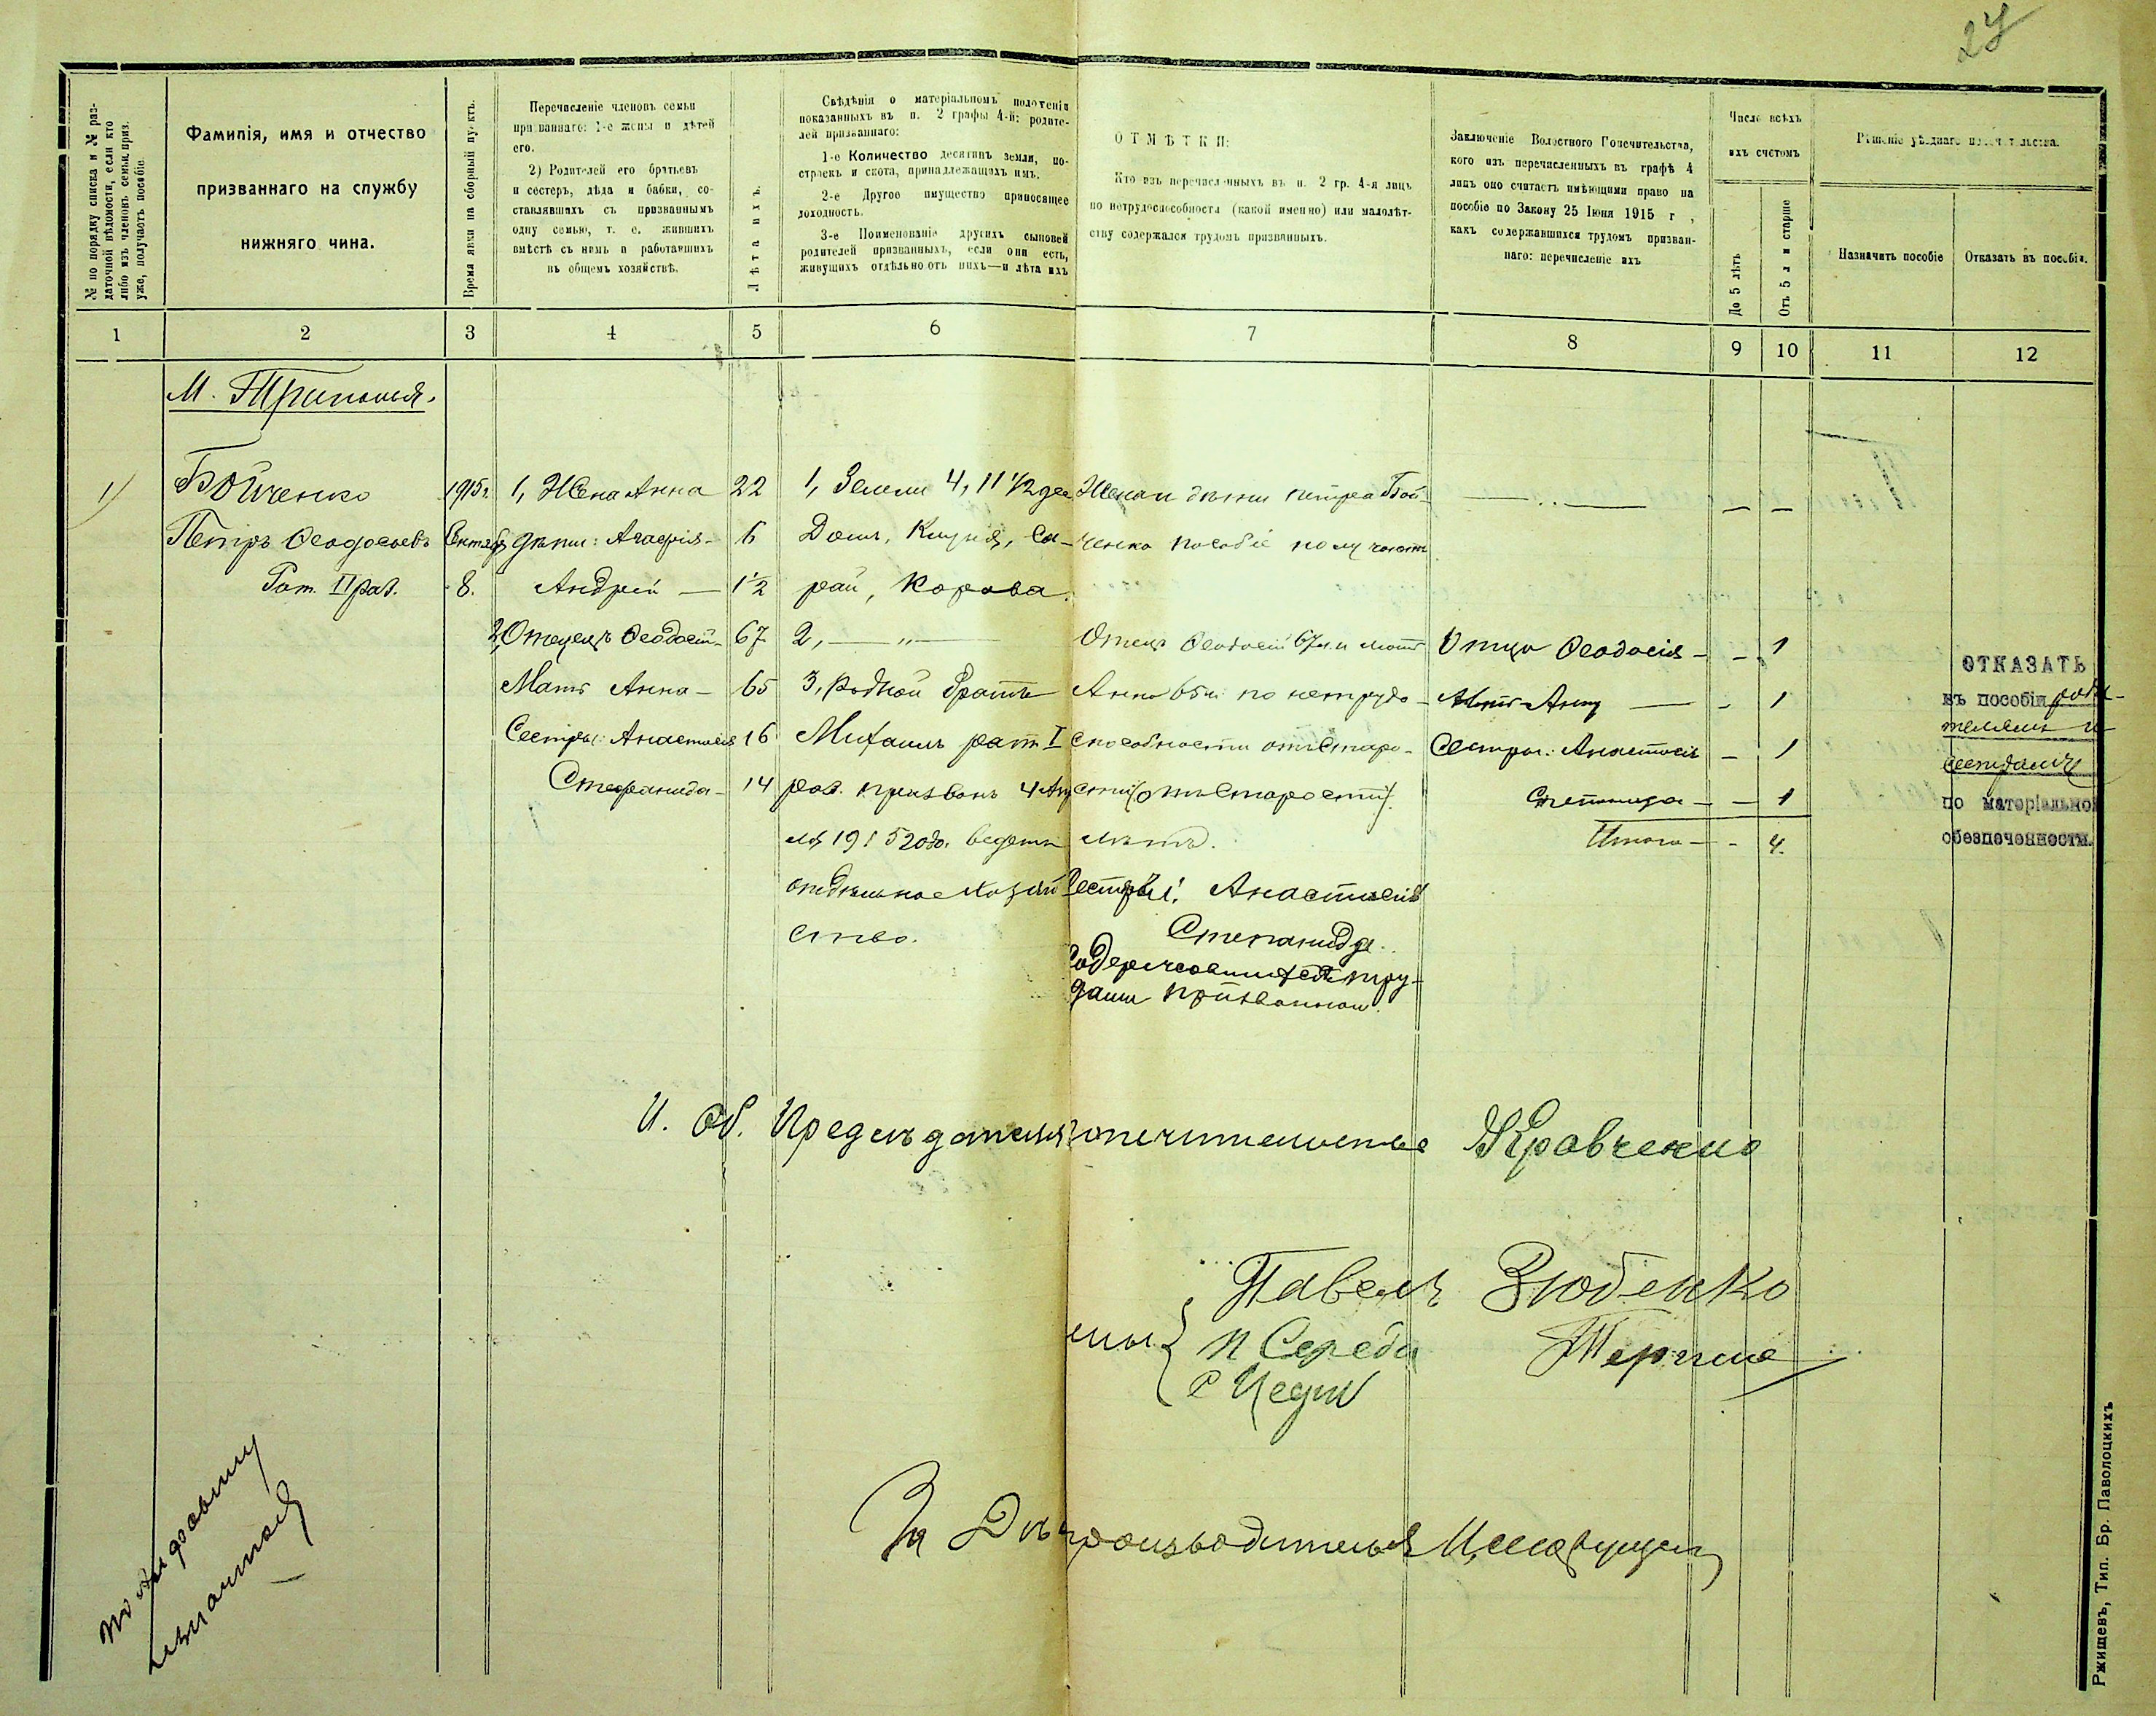 27
№ по порядку списка и № раз-
даточной вѣдомости, если кто
либо изъ членовъ семьи приз.
уже, получаетъ пособіе.
Фамилія, имя и отчество
призваннаго на службу
нижняго чина.
Время явки на сборный пунктъ.
Перечисленіе членовъ семьи
призваннаго: 1-е жены и дѣтей
его.
2) Родителей его братьевъ
и сестеръ, дѣда и бабки, со-
ставлявшихъ съ призваннымъ
одну семью, т. е. жившихъ
вмѣстѣ съ нимъ и работавшихъ
въ общемъ хозяйствѣ.
Лѣта ихъ.
Свѣдѣнія о матеріальномъ положеніи
показанныхъ въ п. 2 графы 4-й: родите-
лей призваннаго:
1-е Количество десятинъ земли, по-
строекъ и скота, принадлежащихъ имъ.
2-е Другое имущество приносящее
доходность.
3-е Поименованіе другихъ сыновей
родителей призванныхъ, если они есть,
живущихъ отдѣльно отъ нихъ—и лѣта ихъ
ОТМѢТКИ:
Кто изъ перечисленныхъ въ п. 2 гр. 4-я лицъ
по нетрудоспособности (какой именно) или малолѣт-
ству содержался трудомъ призванныхъ.
Заключеніе Волостного Попечительства,
кого изъ перечисленныхъ въ графѣ 4
лицъ оно считаетъ имѣющими право на
пособіе по Закону 25 Іюня 1915 г.,
какъ содержавшихся трудомъ призван-
наго: перечисленіе ихъ
Число всѣхъ
ихъ счетомъ
До 5 лѣтъ
Отъ 5 л и старше
Рѣшеніе уѣзднаго попечительства.
Назначить пособіе
Отказать въ пособіи.
1 2 3 4 5 6 7 8 9 10 11 12
М. Триполья.
1) Бойченко 1915г. 1, Жена Анна 22 1, Земли 4, 11 1/2 дес Жена и дѣти Петра Бой-
Петръ Ѳеодосіевъ Сентяб дѣти: Агафія - 6 Домъ, Клуня, Са- ченко пособіе получаютъ
Рат. II раз. 8. Андрей — 1 1/2 рай, Корова.
2, Отецъ Ѳеодосій - 67 2, — " — Отецъ Ѳеодосій 67 л. и мать Отца Ѳеодосія - - 1
Мать Анна - 65 3, Родной братъ Анна 65 л. по нетрудо- Мать Анну — - 1
Сестры: Анастасія 16 Михаилъ рат. I способности отъ старо- Сестры: Анастасія - 1
Стефанида - 14 раз. призванъ 4 Апр сти (отъ старости) Степанида - - 1
ля 1915 года. ведетъ лѣтъ. Итого - - 4.
отдѣльное хозяй Сестры: Анастасія
ство. Степанида.
содержавшіеся тру-
дами призваннаго.
ОТКАЗАТЬ
въ пособіи роди-
телямъ и
сестрамъ
по матеріально
обезпеченности.
И. Об. Предсѣдателя Попечительства Кравченко
Павелъ Зюбенко
П Середа
За Дѣлопроизводителя
Ржищевъ, Тип. Бр. Паволоцкихъ